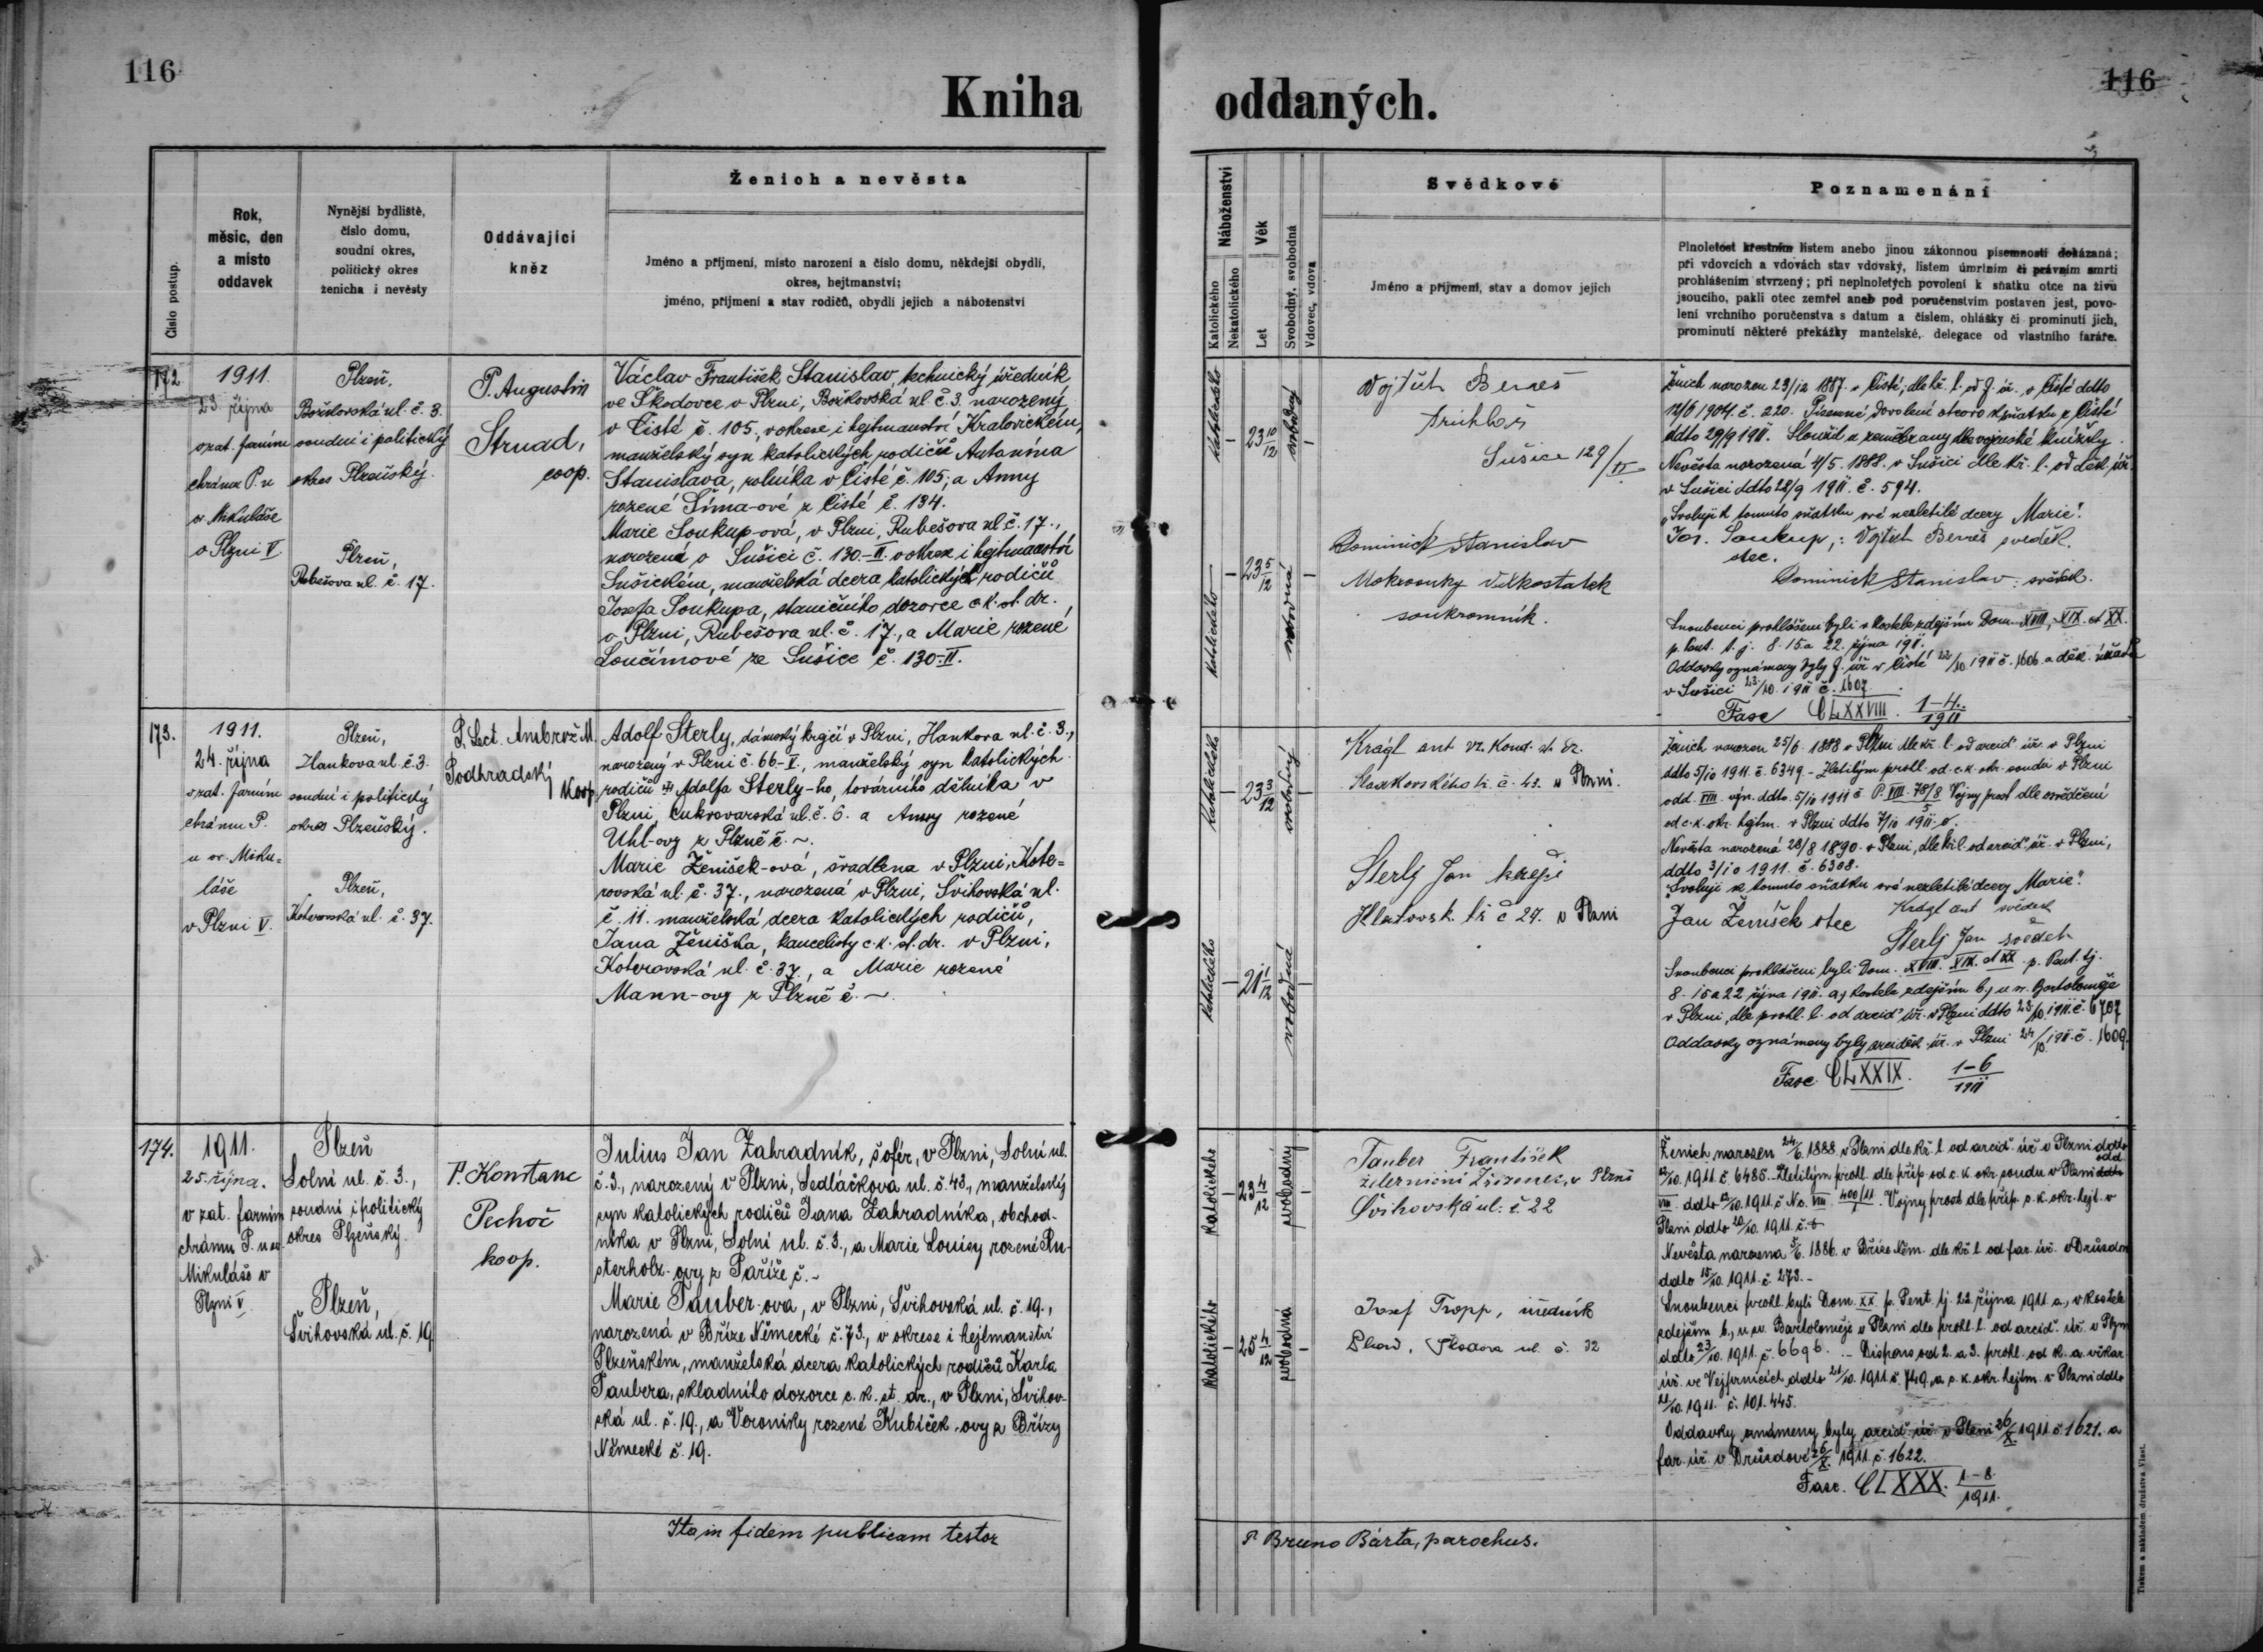 116
Kniha
oddaných.
116
Číslo postup.
Rok,
měsíc, den
a místo
oddavek
Nynější bydliště,
číslo domu,
soudní okres,
politický okres
ženicha i nevěsty
Oddávající
kněz
Ženich a nevěsta
Jméno a příjmení, místo narození a číslo domu, někdejší obydlí,
okres, hejtmanství;
jméno, příjmení a stav rodičů, obydlí jejich a náboženství
Náboženství
Katolického
Nekatolického
Věk
Let
Svobodný, svobodná
Vdovec, vdova
Svědkové
Jméno a příjmení, stav a domov jejich
Poznamenání
Plnoletost křestním listem anebo jinou zákonnou písemností dokázaná;
při vdovcích a vdovách stav vdovský, listem úmrtním či právním smrti
prohlášením stvrzený; při neplnoletých povolení k sňatku otce na živu
jsoucího, pakli otec zemřel aneb pod poručenstvím postaven jest, povo-
lení vrchního poručenstva s datum a číslem, ohlášky či prominutí jich,
prominutí některé překážky manželské, delegace od vlastního faráře.
172
1911.
23. října
v zat. farním
chrámu P. u
sv. Mikuláše
v Plzni V
Plzeň,
Božkovská ul. č. 3.
soudní i politický
okres Plzeňský.
Plzeň,
Rubešova ul. č. 17.
P. Augustin
Strnad,
coop.
Václav František Stanislav, technický úředník
ve Škodovce v Plzni, Božkovská ul. č. 3. narozený
v Čisté č. 105, v okrese i hejtmanství Kralovickém,
manželský syn katolických rodičů Antonína
Stanislava, rolníka v Čisté č. 105, a Anny
rozené Šíma-ové z Čisté č. 134.
Marie Soukup-ová, v Plzni, Rubešova ul. č. 17.,
narozená v Sušici č. 130-II v okrese i hejtmanství
Sušickém, manželská dcera katolických rodičů
Josefa Soukupa, staničního dozorce c. k. st. dr.
v Plzni, Rubešova ul. č. 17., a Marie rozené
Loučímové ze Sušice č. 130-II.
katolického
– 23 10/12 svobodný –
katolického
– 23 5/12 svobodná –
Vojtěch Beneš
Sušice 129/II
Dominick Stanislav
Mokrosuky Velkostatek
soukromník.
Ženich narozen 23/12 1887 v Čisté, dle kř. l. od f. úř. v Čisté ddto
12/6 1904. č. 220. Písemné dovolení otcovo k sňatku z Čisté
ddto 29/9 1911.
Nevěsta narozená 4/5. 1888. v Sušici dle kř. l. od děk. úř.
v Sušici ddto 28/9 1911. č. 594.
„Svoluji k tomuto sňatku své nezletilé dcery Marie".
Jos. Soukup, : Vojtěch Beneš svědek.
otec.
Dominick Stanislav : svědek.
Snoubenci prohlášeni byli v kostele zdejším Dom. XVIII, XIX. et XX.
p. Pent. t. j. 8. 15. a 22. října 1911.
Oddavky oznámeny byly f. úř. v Čisté 23/10 1911 č. 1606. a děk. úřadu
v Sušici 23/10. 1911 č. 1607.
Fasc CLXXVIII. 1-4./1911
173.
1911.
24. října
v zat. farním
chrámu P.
u sv. Miku-
láše
v Plzni V.
Plzeň,
Hankova ul. č. 3.
soudní i politický
okres Plzeňský.
Plzeň,
Koterovská ul. č. 37.
P. Lect. Ambrož M.
Podhradský
koop.
Adolf Sterly, dámský krejčí v Plzni, Hankova ul. č. 3.,
narozený v Plzni č. 66-V., manželský syn katolických
rodičů Adolfa Sterly-ho, továrního dělníka v
Plzni, Cukrovarská ul. č. 6. a Anny rozené
Uhl-ovy z Plzně č. ~.
Marie Ženíšek-ová, švadlena v Plzni, Kote-
rovská ul. č. 37., narozená v Plzni, Švihovská ul.
č. 11. manželská dcera katolických rodičů,
Jana Ženíška, kancelisty c. k. st. dr. v Plzni,
Koterovská ul. č. 37, a Marie rozené
Mann-ovy z Plzně č. ~.
Katolického
– 23 3/12 svobodný –
katolického
– 21 1/12 svobodná –
Krágl ant vr. Kond. st. dr.
č. 43. v Plzni.
Sterly Jan krejčí
Klatovsk. tř. č 27. v Plzni
Ženich narozen 25/6. 1888 v Plzni dle kř. l. od arcid. úř. v Plzni
ddto 5/10 1911. č. 6349. - Zletilým prohl. od. c. k. okr. soudu v Plzni
odd. VIII. ddto. 5/10 1911 č P. VIII. 78/8/5 Vojny prost dle osvědčení
od c. k. okr. hejtm. v Plzni ddto 7/10 1911.
Nevěsta narozená 28/8 1890. v Plzni, dle kř. l. od arcid. úř. v Plzni,
ddto 3/10 1911. č. 6308.
„Svoluji k tomuto sňatku své nezletilé dcery Marie".
Jan Ženíšek otec Krágl ant svědek
Sterly Jan svědek
Snoubenci prohlášeni byli Dom. XVIII. XIX. et XX. p. Pent. tj.
8. 15 a 22 října 1911. a) kostele zdejším b) u sv. Bartoloměje
v Plzni, dle prohl. l. od arcid. úř. v Plzni ddto 23/10 1911. č. 6707
Oddavky oznámeny byly arciděk. úř. v Plzni 24/10. 1911. č. 1609.
Fasc. CLXXIX. 1-6/1911
174.
1911.
25. října.
v zat. farním
chrámu P. u sv.
Mikuláše v
Plzni V
Plzeň
Solní ul. č. 3.,
soudní i politický
okres Plzeňský.
Plzeň,
Švihovská ul. č. 19
P. Konstanc
Pechoč
koop.
Julius Jan Zahradník, šofér, v Plzni, Solní ul.
č. 3., narozený v Plzni, Sedláčkova ul. č. 43., manželský
syn katolických rodičů Jana Zahradníka, obchod-
níka v Plzni, Solní ul. č. 3., a Marie Louisy rozené Pu-
sterholz-ovy z Paříže č. -
Marie Tauber-ova, v Plzni, Švihovská ul. č. 19.,
narozená v Bříze Německé č. 73., v okrese i hejtmanství
Plzeňském, manželská dcera katolických rodičů Karla
Taubera, skladního dozorce c. k. st. dr., v Plzni, Švihov-
ská ul. č. 19., a Veroniky rozené Kubíček-ovy z Břízy
Německé č. 19.
Katolického
– 23 4/12 svobodný –
Katolického
– 25 4/12 svobodná –
Tauber František
železniční Zřízenec, v Plzni
Švihovská ul. č. 22
Josef Tropp, úředník
Škodova ul. č. 32
Ženich narozen 24/6. 1888. v Plzni dle kř. l. od arcid. úř. v Plzni ddto
12/10. 1911. č. 6485. - Zletilým prohl. dle příp. od c. k. okr. soudu v Plzni odd.
VIII. ddto 12/10. 1911. č Nc. VIII. 400/11/1. Vojny prost dle příp. c. k. okr. hejt. v
Plzni ddto 20/10. 1911. č.
Nevěsta narozena 5/6. 1886. v Bříze Něm. dle kř. l. od far. úř. v Druzdově
ddto 15/10. 1911. č. 273. -
Snoubenci prohl. byli Dom. XX. p. Pent. tj. 22 října 1911 a., v kostele
zdejším b., u sv. Bartoloměje v Plzni dle prohl. l. od arcid. úř. v Plzni
ddto 23/10. 1911. č. 6696. - Dispens od 2. a 3. prohl. od k. a. vikar.
úř. ve Vejprnicích ddto 21/10. 1911 č. 749, a c. k. okr. hejtm. v Plzni ddto
21/10. 1911. č. 101.445.
Oddavky oznámeny byly arcid. úř. v Plzni 26/X 1911 č. 1621. a
far. úř. v Druzdově 26/X. 1911. č. 1622.
Fasc. CLXXX. 1-8/1911.
Ita in fidem publicam testor
P Bruno Bárta, parochus.
Tiskem a nákladem družstva Vlast.